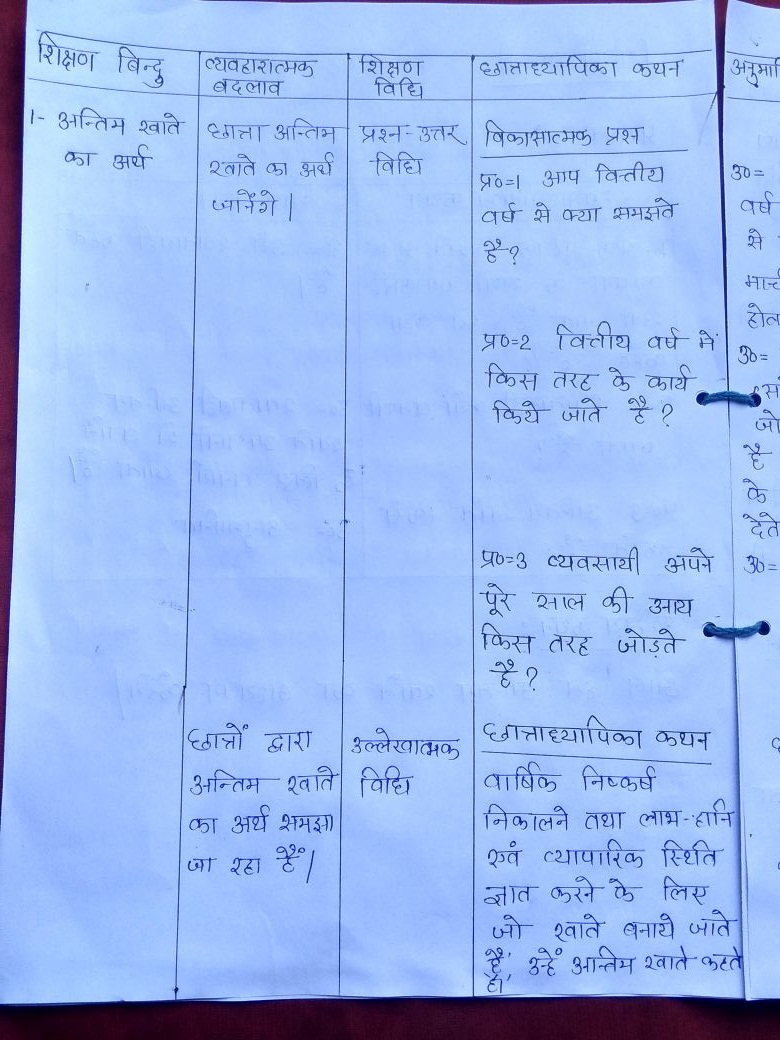 शिक्षण बिन्दु
व्यवहारात्मक
बदलाव
शिक्षण
विधि
छात्राध्यापिका कथन
1- अन्तिम खाते
का अर्थ
छात्रा अन्तिम
खाते का अर्थ
जानेंगे।
प्रश्न-उत्तर
विधि
विकासात्मक प्रश्न
प्र०=1 आप वित्तीय
वर्ष से क्या समझते
है?
प्र०=2 वित्तीय वर्ष में
किस तरह के कार्य
किये जाते है?
प्र०=3 व्यवसायी अपने
पूरे साल की आय
किस तरह जोड़ते
है?
छात्रों द्वारा
अन्तिम खाते
का अर्थ समझा
जा रहा है।
उल्लेखात्मक
विधि
छात्राध्यापिका कथन
वार्षिक निष्कर्ष
निकालने तथा लाभ-हानि
एवं व्यापारिक स्थिति
ज्ञात करने के लिए
जो खाते बनाये जाते
है, उन्हें अन्तिम खाते कहते
है।
उ०=
वर्ष
से
उ०=
जो
है
के
देते
उ०=